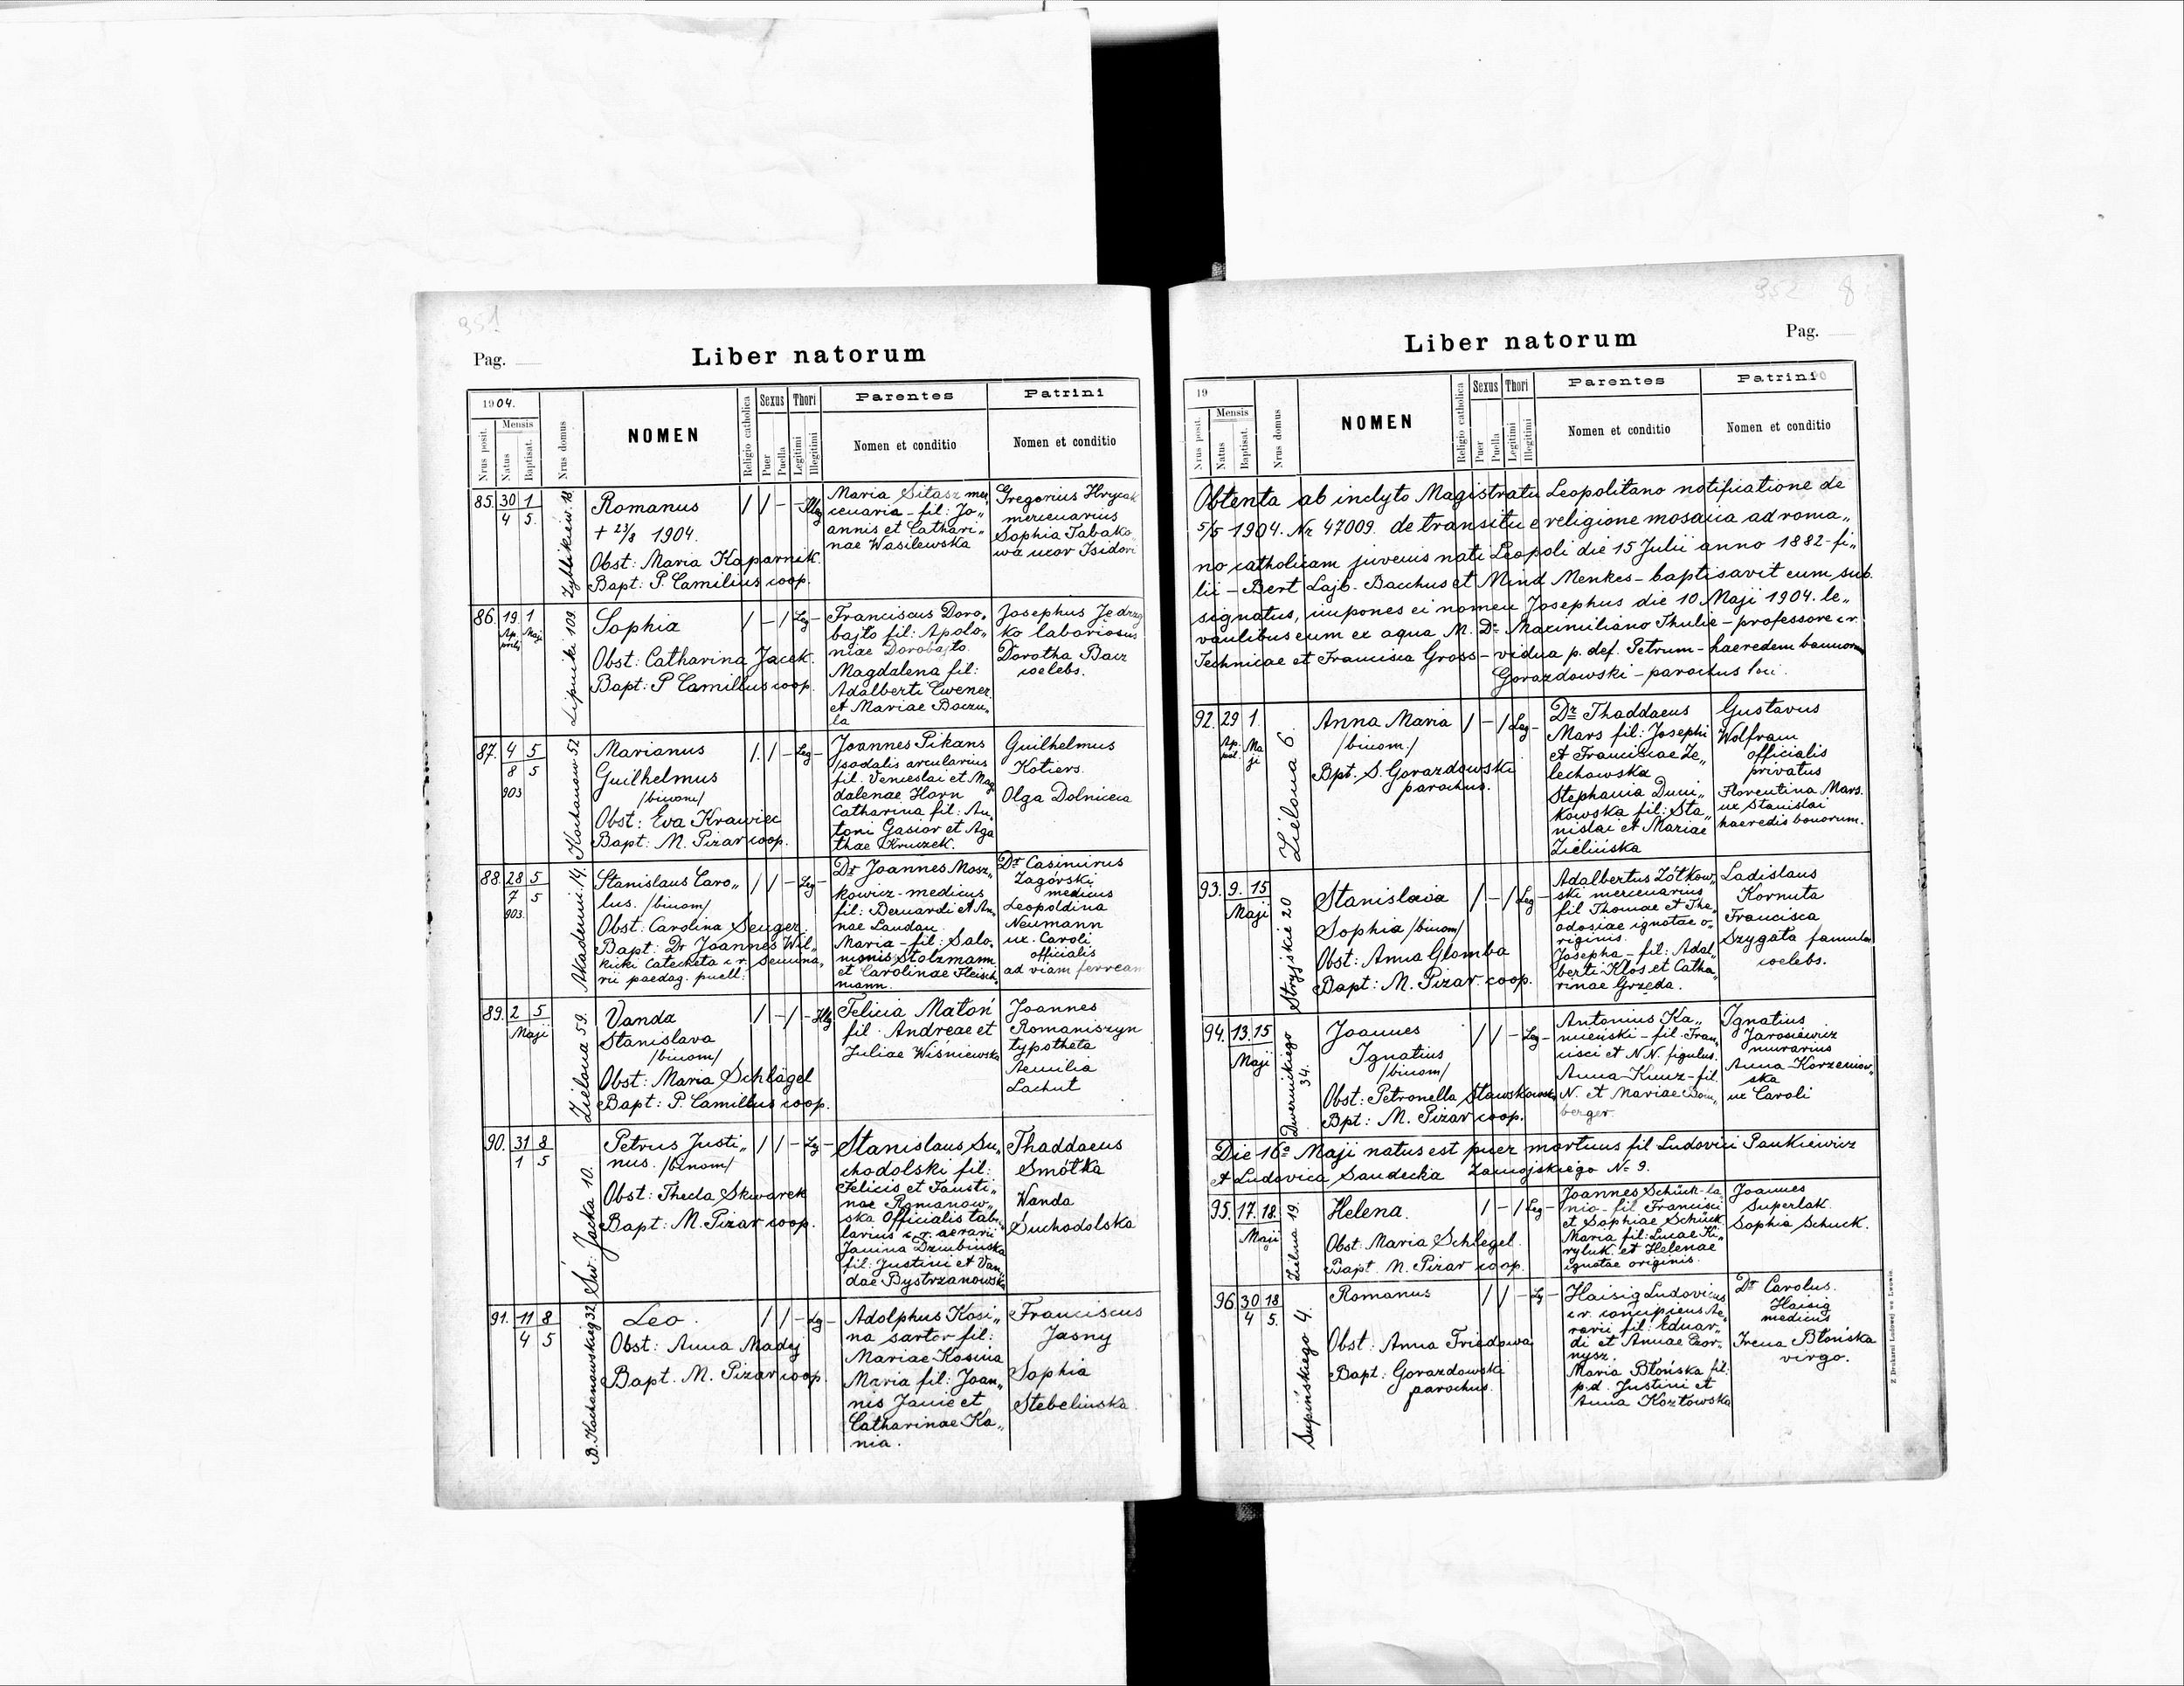 951
Pag.
Liber natorum
1904.
Nrus posit.
Mensis
Natus
Baptisat.
Nrus domus
NOMEN
Religio catholica
Sexus
Puer
Puella
Thori
Legitimi
Illegitimi
Parentes
Nomen et conditio
Patrini
Nomen et conditio
85. 30/4 1/5.
Zyblikiew. 18
Romanus
+ 23/8 1904.
Obst: Maria Kaparnik.
Bapt: P. Camillus coop.
/ / - - Illeg
Maria Sitasz mer„
cenaria - fil: Jo„
annis et Cathari„
nae Wasilewska
Gregorius Hrycak
mercenarius
Sophia Tabako„
wa uxor Isidori
86. 19. Aprilis 1 Maji
Lipniki 109.
Sophia
Obst: Catharina Jacek.
Bapt: P Camillus coop.
/ - / Leg -
Franciscus Doro„
bajło fil: Apolo„
niae Dorobajło.
Magdalena fil:
Adalberti Cwener
et Mariae Boczu„
la
Josephus Jedrzy
ko laboriosus
Dorotha Bacz
coelebs.
87. 4/8 903 5/5
Kochanow 52
Marianus
Guilhelmus
/binom/
Obst: Eva Krawiec
Bapt: M. Pizar coop.
/ / - Leg -
Joannes Pikans
/sodalis arcularius
fil: Venceslai et Mag
dalenae Horn
Catharina fil: An„
toni Gasior et Aga
thae Kruczek.
Guilhelmus
Kotiers.
Olga Dolnicia
88. 28/7 903. 5/5
Akademii. 14.
Stanislaus Caro„
lus. /binom/
Obst: Carolina Senger.
Bapt: Dr Joannes Wil„
kicki Catecheta c. r. Semina„
rii paedag. puell:
/ / - Leg -
Dr Joannes Mosz„
kowicz - medicus
fil: Bernardi et An„
nae Landau.
Maria - fil: Salo„
monis Stolzmann
et Carolinae Fleisch
mann.
Dr Casimirus
Zagórski
medicus
Leopoldina
Neumann
ux. Caroli
officialis
ad viam ferream
89. 2 5 Maji
Zielona 59.
Vanda
Stanislava
/binom/
Obst: Maria Schlägel
Bapt: P. Camillus coop.
/ - / - Illeg
Felicia Matoń
fil. Andreae et
Juliae Wiśniewska
Joannes
Romaniszyn
typotheta
Aemilia
Lachut
90. 31/1 8/5
Sw. Jacka 10.
Petrus Justi„
nus. /binom/
Obst: Thecla Skwarek
Bapt: M. Pizar coop.
/ / - Leg -
Stanislaus Su„
chodolski fil:
Felicis et Fausti„
nae Romanow„
ska Officialis tabu„
larius c. r. aerarii
Janina Dzimbińska
fil: Justini et Van„
dae Bystrzanowska
Thaddaeus
Smółka
Wanda
Suchodolska
91. 11/4 8/5
B. Kochanowskieg 32.
Leo.
Obst: Anna Madej
Bapt. M. Pizar coop.
/ / - Leg -
Adolphus Kosi„
na sartor fil:
Mariae Kosina
Maria fil: Joan„
nis Janie et
Catharinae Ka„
nia.
Franciscus
Jasny
Sophia
Stebelinska
952 8
Liber natorum
Pag.
19
Nrus posit.
Mensis
Natus
Baptisat.
Nrus domus
NOMEN
Religio catholica
Sexus
Puer
Puella
Thori
Legitimi
Illegitimi
Parentes
Nomen et conditio
Patrini
Nomen et conditio
Obtenta ab inclyto Magistratu Leopolitano notificatione de
5/5 1904. Nr 47009. de transitu e religione mosaica ad roma„
no catholicam juvenis nati Leopoli die 15 Julii anno 1882 - fi„
lii - Bert Lajb. Bacchus et Mind Menkes - baptisavit eum sub.
signatus, impones ei nomen Josephus die 10 Maji 1904. le„
vantibus eum ex aqua M. Dr Maximiliano Thulie - professore c. r.
Technicae et Francisca Gross - vidua p. def. Petrum - haeredem bonorum
Gorazdowski - parochus loci.
92. 29 April. 1. Maji
Zielona 6.
Anna Maria
/binom./
Bpt. S. Gorazdowski
parochus.
/ - / Leg -
Dr Thaddaeus
Mars fil: Josephi
et Franciscae Ze„
lechowska
Stephania Duni„
kowska fil: Sta„
nislai et Mariae
Zielińska
Gustavus
Wolfram
officialis
privatus
Florentina Mars.
ux Stanislai
haeredis bonorum.
93. 9. 15 Maji
Stryjskie 20
Stanislava
Sophia /binom/
Obst: Anna Glomba
Bapt: M. Pizar. coop.
/ - / Leg -
Adalbertus Żółkow„
ski mercenarius
fil Thomae et The„
odosiae ignotae o„
riginis.
Josepha - fil: Adal„
berti Klos et Catha„
rinae Grzęda.
Ladislaus
Kornuta
Francisca
Szygata famula
coelebs.
94. 13. 15 Maji
Dwernickiego 34.
Joannes
Ignatius
/binom/
Obst: Petronella Stawskowska
Bpt: M. Pizar coop.
/ / - Leg -
Antonius Ka„
mieński - fil. Fran„
cisci et N.N. figulus.
Anna Kunz - fil.
N. et Mariae Bom„
berger.
Ignatius
Jarosiewicz
murarius
Anna Korzeniow„
ska
ux Caroli
Die 16a Maji natus est puer mortuus fil Ludovici Pankiewicz
et Ludovica Saudecka Zamojskiego № 9.
95. 17. 18. Maji
Zielna 19.
Helena.
Obst: Maria Schlegel.
Bapt. M. Pizar coop.
/ - / Leg -
Joannes Schück - la
nio - fil Francisci
et Sophiae Schück
Maria fil: Lucae Ki„
ryluk. et Helenae
ignotae originis.
Joannes
Superlak.
Sophia Schuck.
96. 30/4 18/5.
Supińskiego 4.
Romanus
Obst: Anna Friedowa
Bapt: Gorazdowski
parochus.
/ / - Leg -
Haisig Ludovicus
c. r. concipiens Ae„
rarii fil: Eduar„
di et Annae Czor„
nysz.
Maria Błońska fil:
p.d. Justini et
Anna Kozłowska
Dr Carolus.
Haisig
medicus
Irena Błońska
virgo.
Z Drukarni Ludowej we Lwowie.